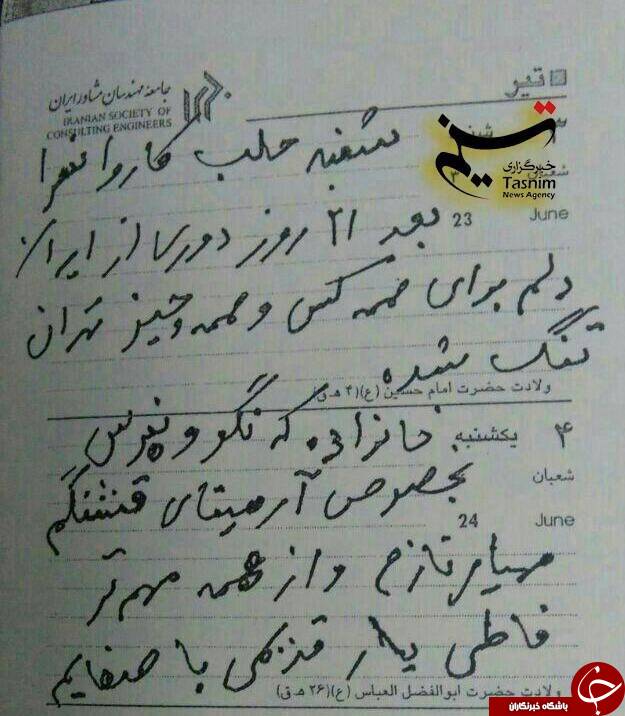 تیر
جامعه مهندسان مشاور ایران
IRANIAN SOCIETY OF
CONSULTING ENGINEERS
تسنیم
خبرگزاری
Tasnim
News Agency
۳ شنبه
شنبه حلب
23 June
بعد ۲۱ روز دوری از ایران
دلم برای همه کس و همه چیز تهران
تنگ شده
ولادت حضرت امام حسین (ع)(۴ ه‍.ق)
۴ یکشنبه
خانواده که نگو و نپرس
شعبان
بخصوص آرمیتای قشنگم
24 June
مهیار نازم و از همه مهم تر
فاطی یار قدیمی با صفایم
ولادت حضرت ابوالفضل العباس (ع)(۲۶ ه‍.ق)
باشگاه خبرنگاران